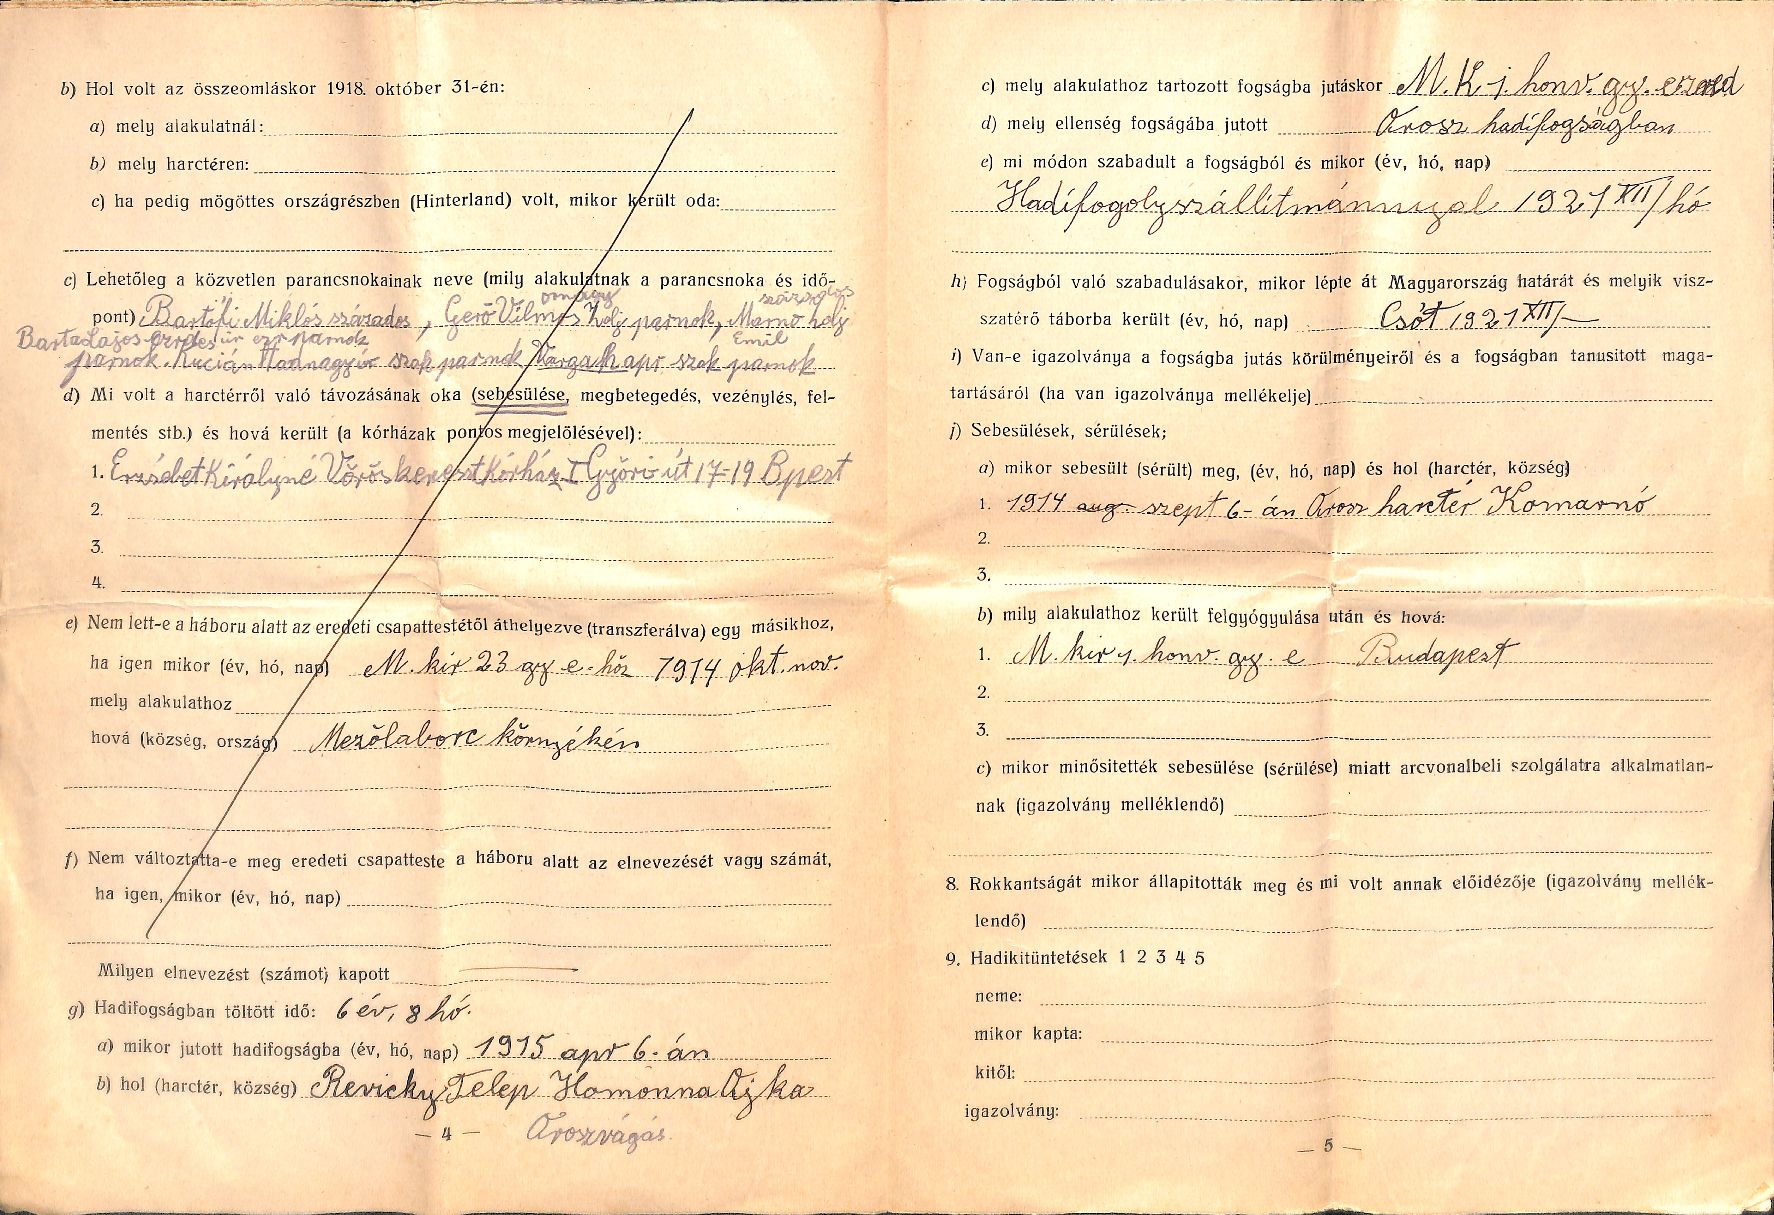 b) Hol volt az összeomláskor 1918. október 31-én:
a) mely alakulatnál:
b) mely harctéren:
c) ha pedig mögöttes országrészben (Hinterland) volt, mikor került oda:
c) Lehetőleg a közvetlen parancsnokainak neve (mily alakulatnak a parancsnoka és idő-
őrnagy százados
pont) Bartófi Miklós százados, Gerő Vilmos zolj parnok, Marno zolj
Barta Lajos ezredes úr ezr parnok Emil
parnok. Lucián Hadnagy úr szak parnok Varga K apr szak parnok
d) Mi volt a harctérről való távozásának oka (sebesülése, megbetegedés, vezénylés, fel-
mentés stb.) és hová került (a kórházak pontos megjelölésével):
1. Erzsébet Királyné Vöröskereszt Kórház I Győri út 17-19 Bpest
2.
3.
4.
e) Nem lett-e a háboru alatt az eredeti csapattestétől áthelyezve (transzferálva) egy másikhoz,
ha igen mikor (év, hó, nap) M. kir 23 gy e-höz 1914 okt. nov.
mely alakulathoz
hová (község, ország) Mezőlaborc környékén
f) Nem változtatta-e meg eredeti csapatteste a háboru alatt az elnevezését vagy számát,
ha igen, mikor (év, hó, nap)
Milyen elnevezést (számot) kapott
g) Hadifogságban töltött idő: 6 év, 8 hó.
a) mikor jutott hadifogságba (év, hó, nap) 1915 apr 6-án
b) hol (harctér, község) Revicky Telep Homonna Ojka
— 4 — Oroszvágás
c) mely alakulathoz tartozott fogságba jutáskor M. K 1. honv. gy. ezered
d) mely ellenség fogságába jutott Orosz hadifogságban
e) mi módon szabadult a fogságból és mikor (év, hó, nap)
Hadifogolyszállítmánnyal 1921 XII/hó
h) Fogságból való szabadulásakor, mikor lépte át Magyarország határát és melyik visz-
szatérő táborba került (év, hó, nap) Csót 1921 XII/—
i) Van-e igazolványa a fogságba jutás körülményeiről és a fogságban tanusitott maga-
tartásáról (ha van igazolványa mellékelje)
j) Sebesülések, sérülések;
a) mikor sebesült (sérült) meg, (év, hó, nap) és hol (harctér, község)
1. 1914 aug. szept 6-án Orosz harctér Komarnó
2.
3.
b) mily alakulathoz került felgyógyulása után és hová:
1. M. kir 1. honv. gy. e Budapest
2.
3.
c) mikor minősitették sebesülése (sérülése) miatt arcvonalbeli szolgálatra alkalmatlan-
nak (igazolvány melléklendő)
8. Rokkantságát mikor állapitották meg és mi volt annak előidézője (igazolvány mellék-
lendő)
9. Hadikitüntetések 1 2 3 4 5
neme:
mikor kapta:
kitől:
igazolvány:
— 5 —